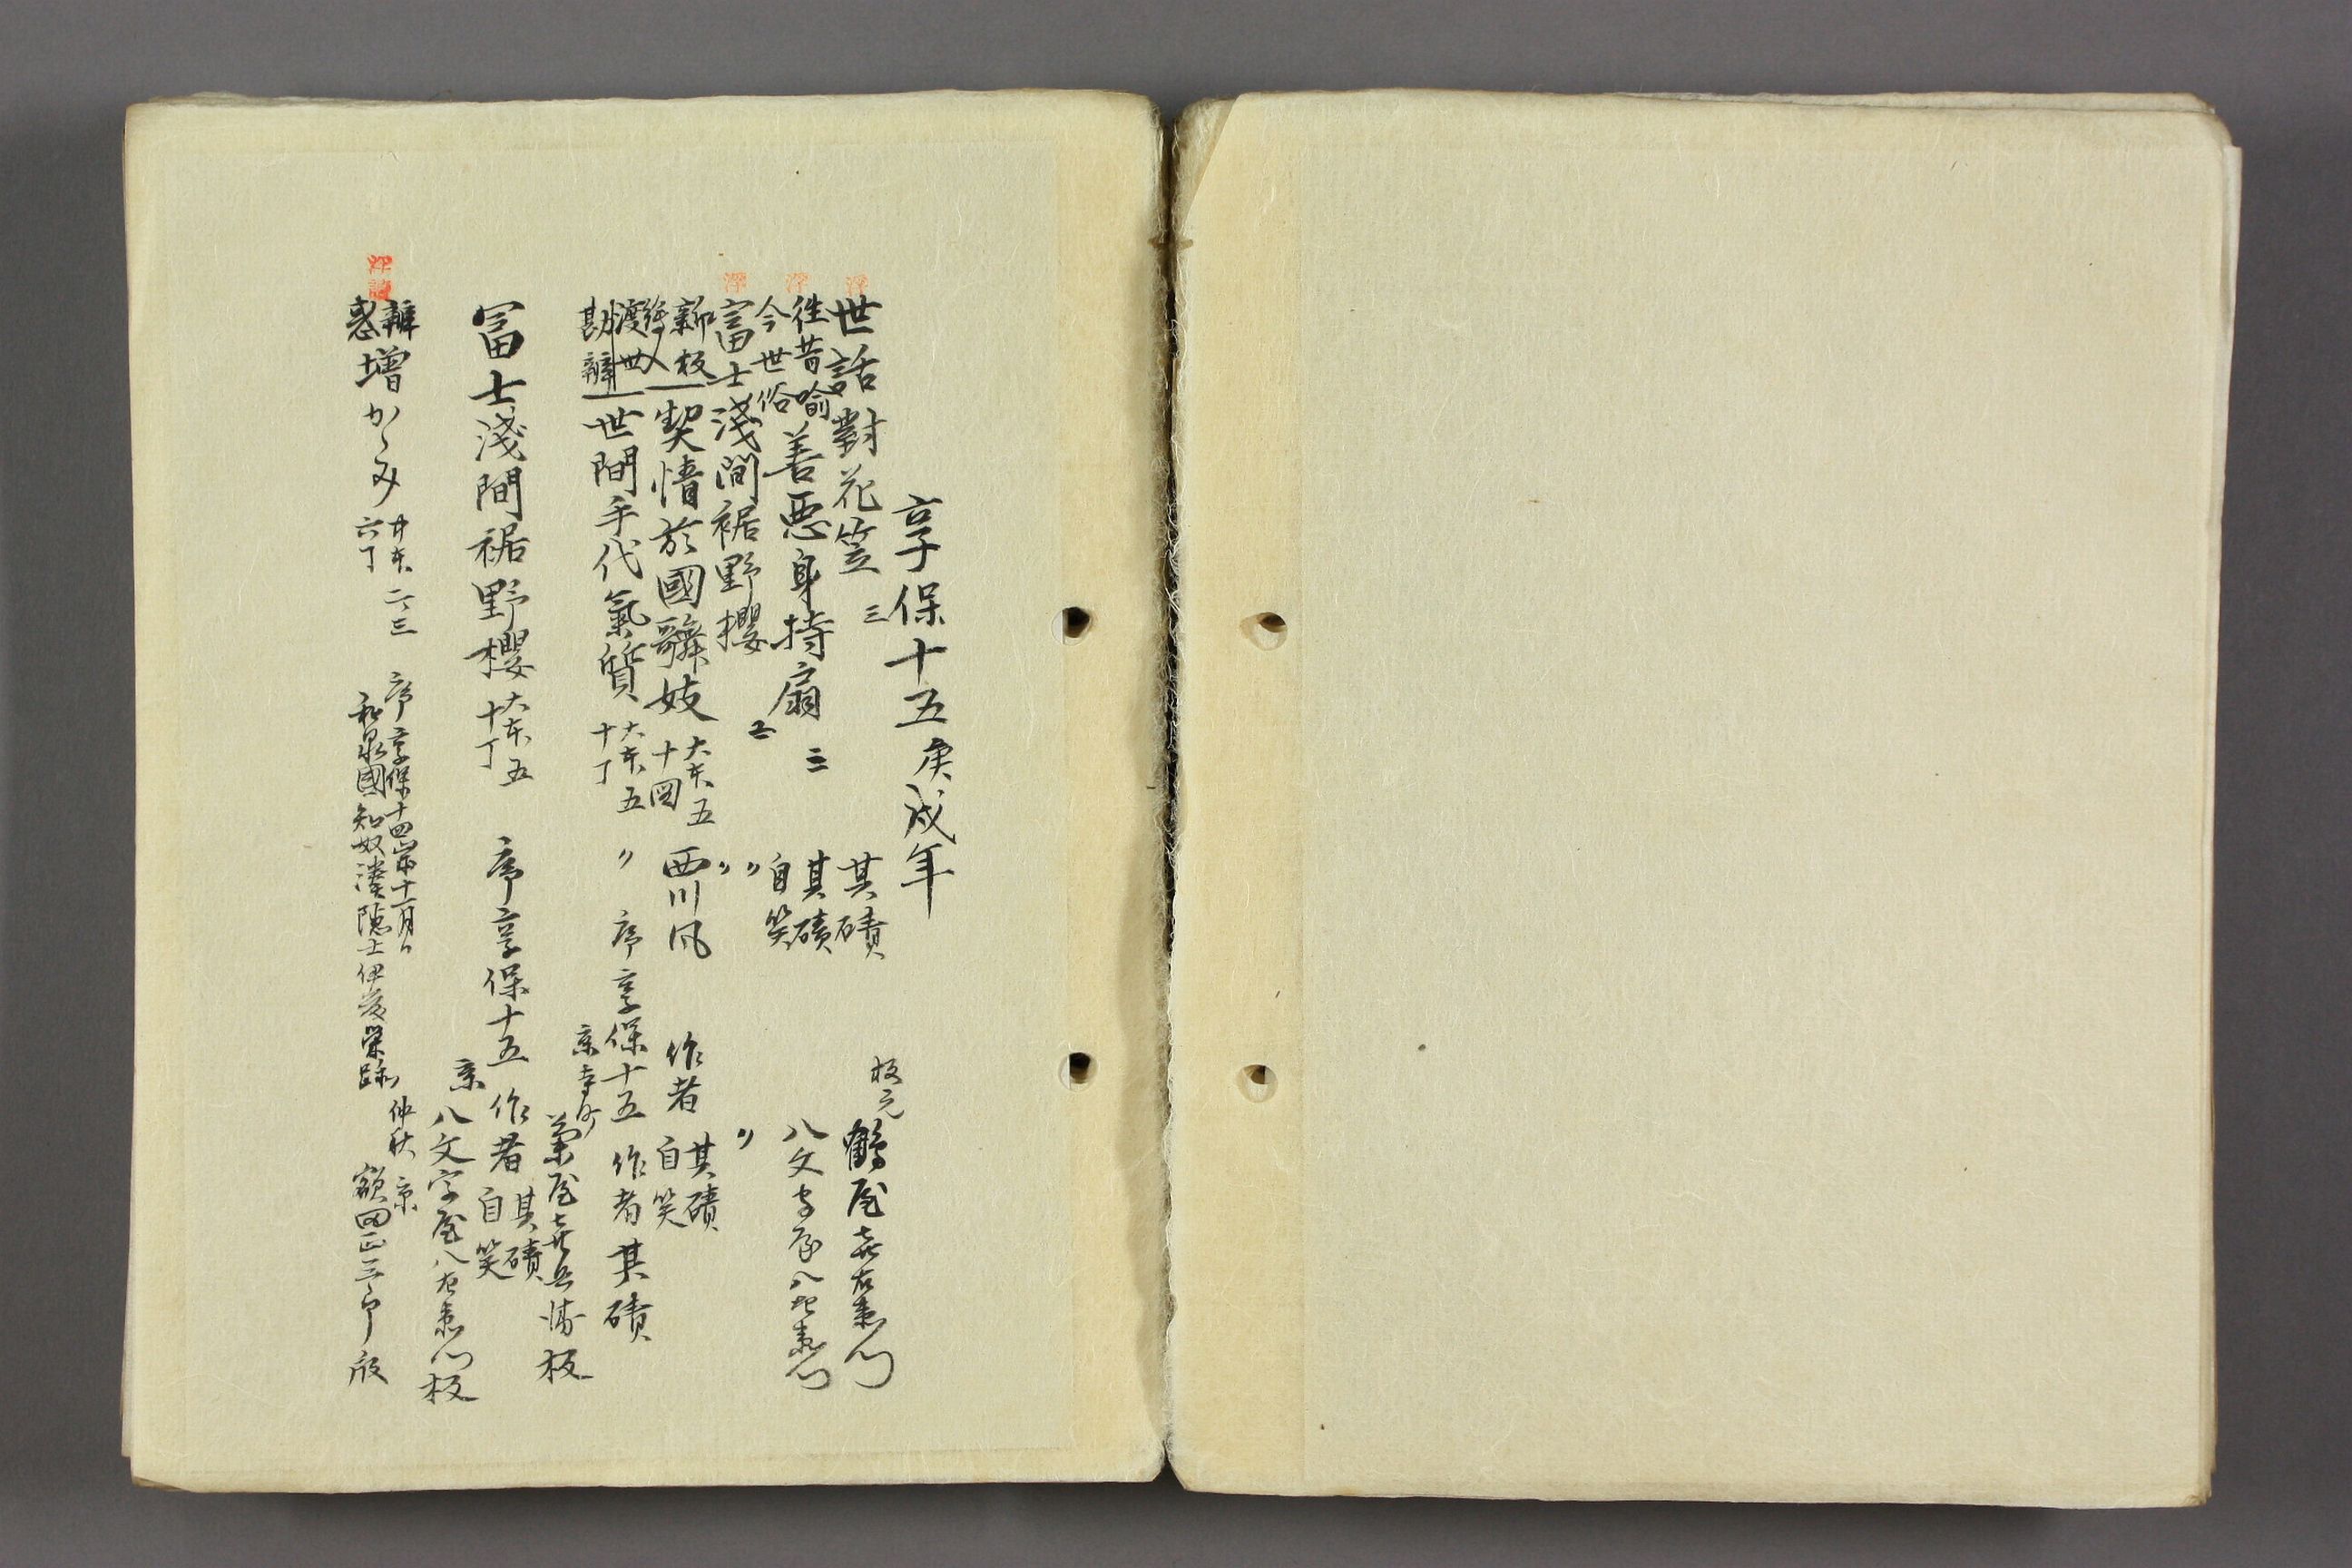 享保十五庚戌年
浮
世話對花笠 三 其磧 板元 鶴屋喜右衛門
浮
往昔喩
今世俗
善悪身持扇 三 其磧
自笑 八文字屋八左衛門
浮
富士淺間裾野櫻 五 〃 〃
新板
契情於國歌妓 大本五
十四 西川風 作者 其磧
自笑
渡世
勘辨
世間手代氣質 大本五
十丁 〃 序享保十五 作者 其磧
京寺町 菊屋喜兵衛板
冨士淺間裾野櫻 大本五
十丁 序享保十五 作者 其磧
自笑
京 八文字屋八左衛門板
浮
辨
惑
増かゝみ 中本
六丁 二三 序 享保十四 十一月日
和泉國知奴湊隠士伊藤栄跡
仲秋 京 額田正三郎版